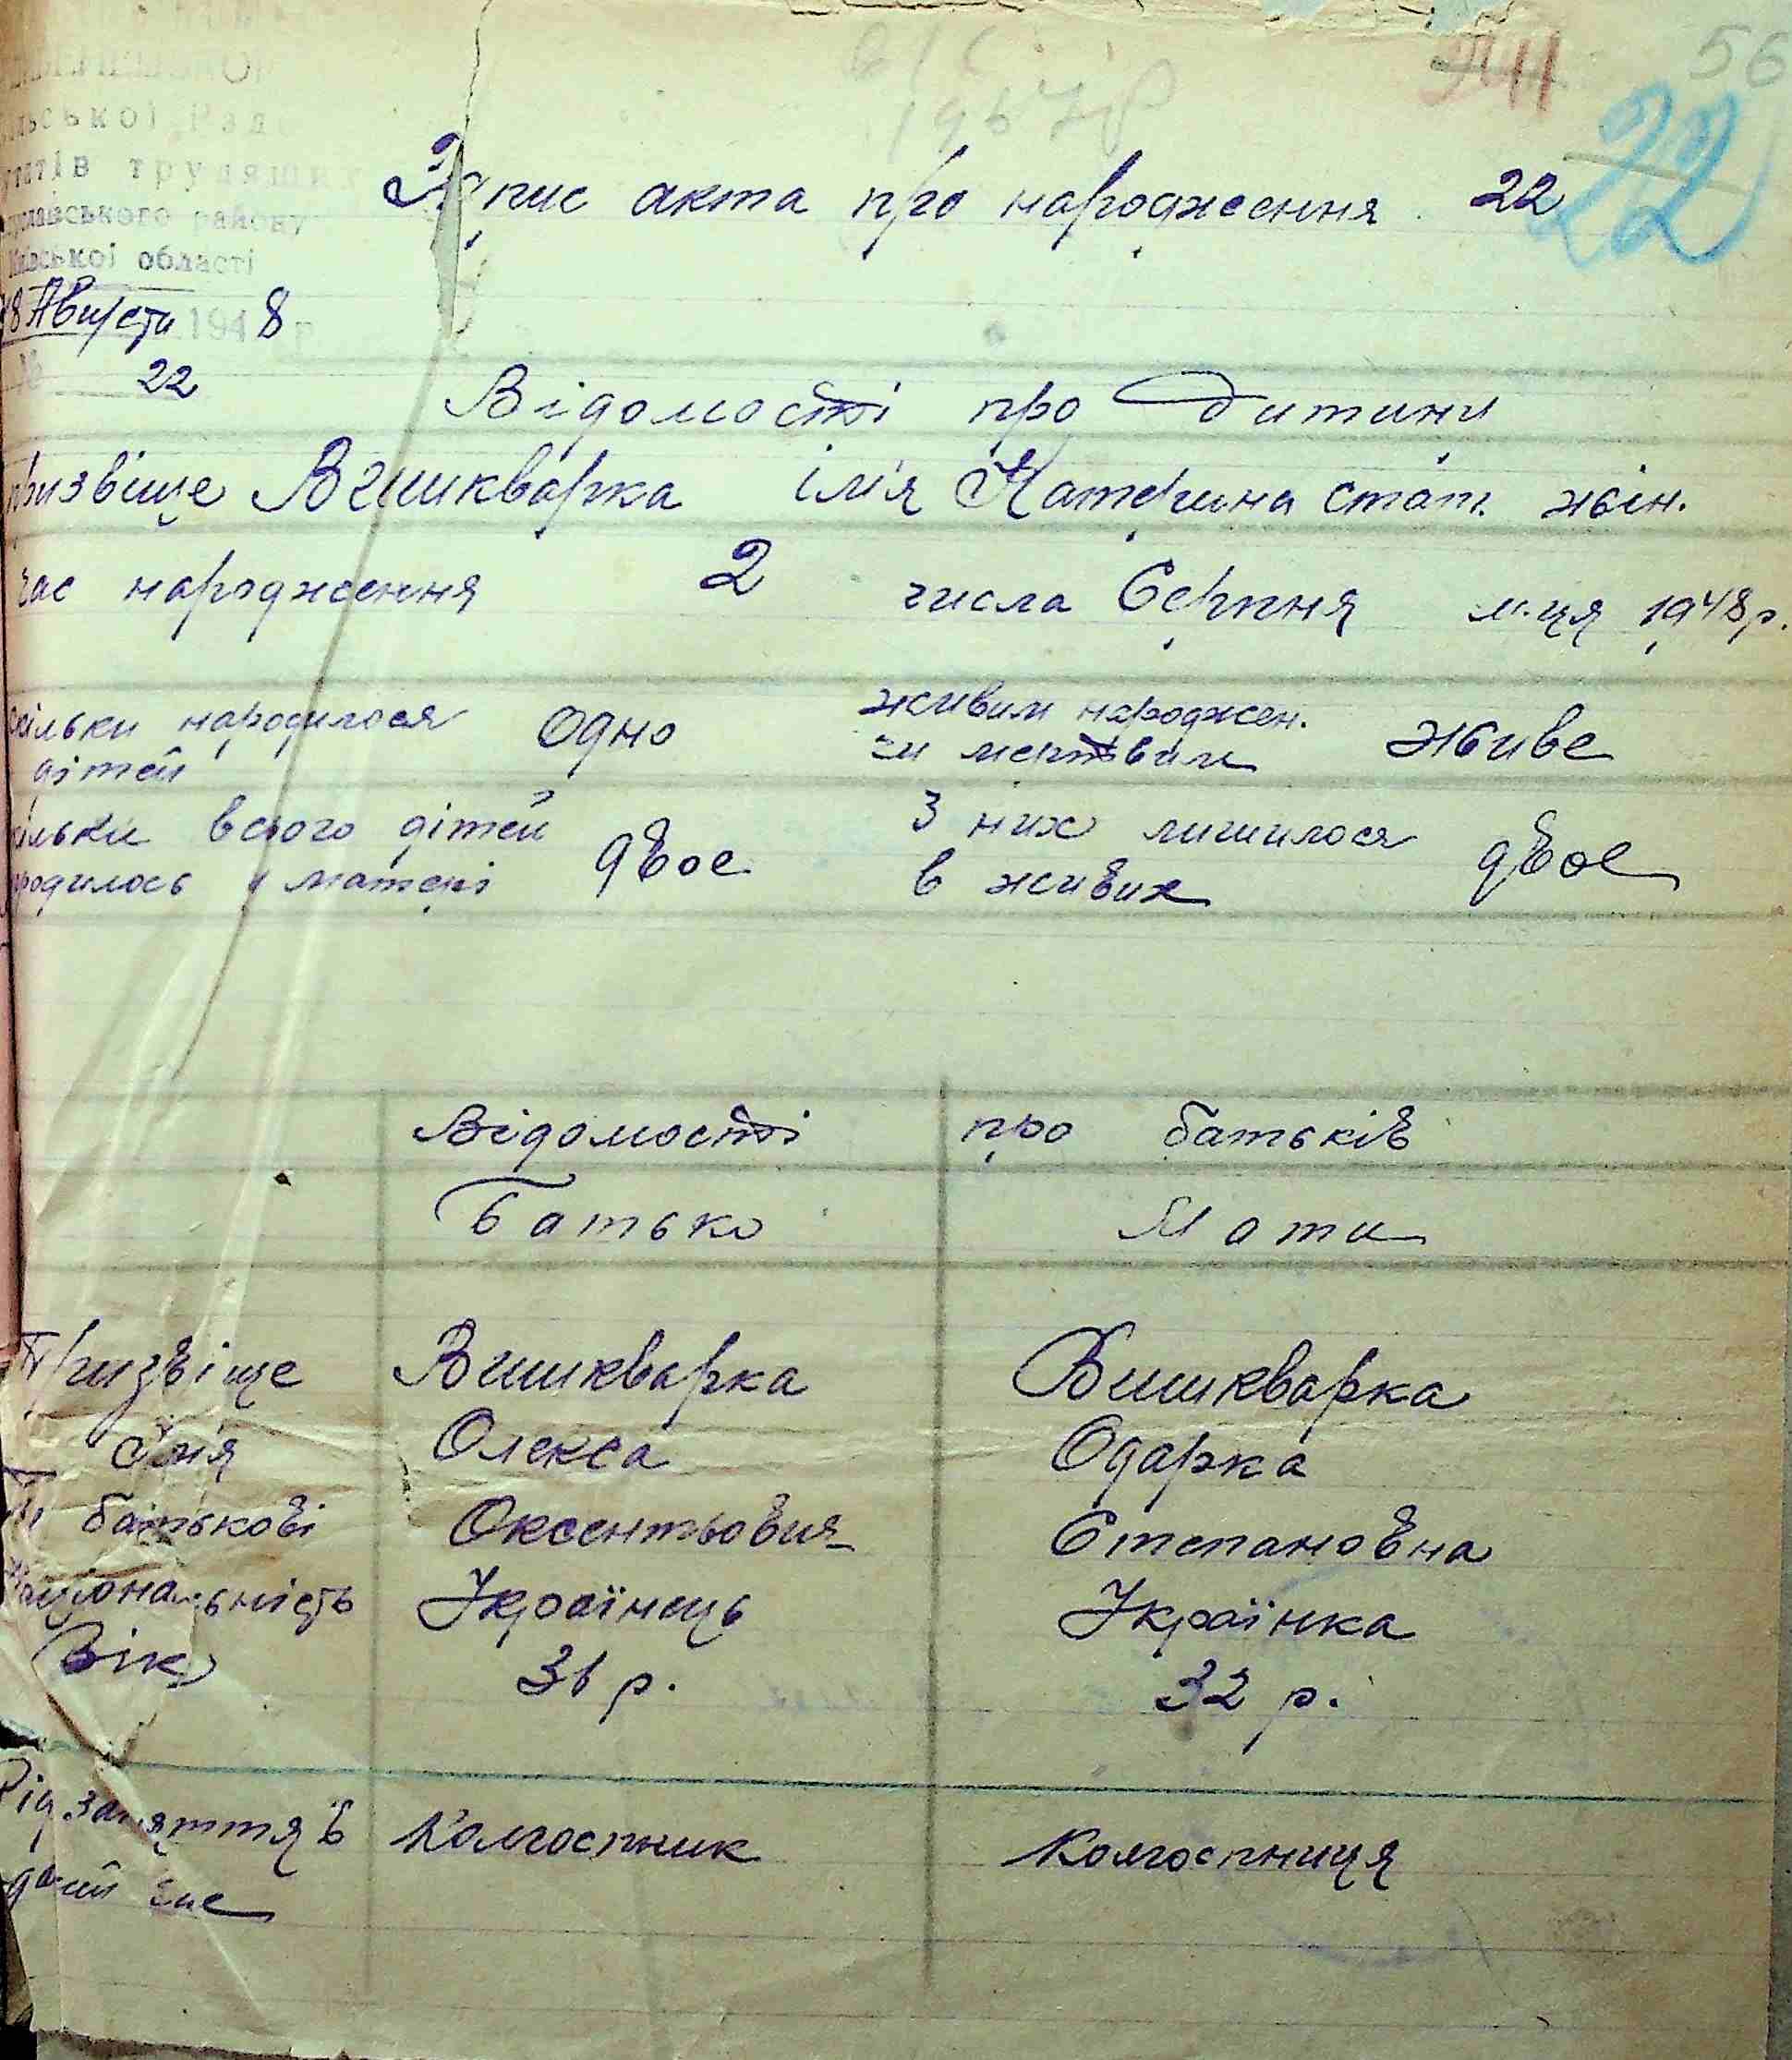 56
22
Запис акта про народження 22
ської Рад
трудящих
району
ської області
8 Августи 1948 р
№ 22
Відомості про дитину
призвіще Вишкварка ім'я Катерина стат. жін.
час народження 2 числа Серпня м-ця 1948 р.
скільки народилося дітей одно живим народжен. чи мертвим живе
скільки всього дітей родилось у матері двоє З них лишилося в живих двоє
Відомості про батьків
Батько Мати
Призвіще Вишкварка Вишкварка
Ім'я Олекса Одарка
По батькові Оксентьович Степановна
Національність Українець Українка
Вік 36 р. 32 р.
Рід заняття в даний час Колгоспник Колгоспниця